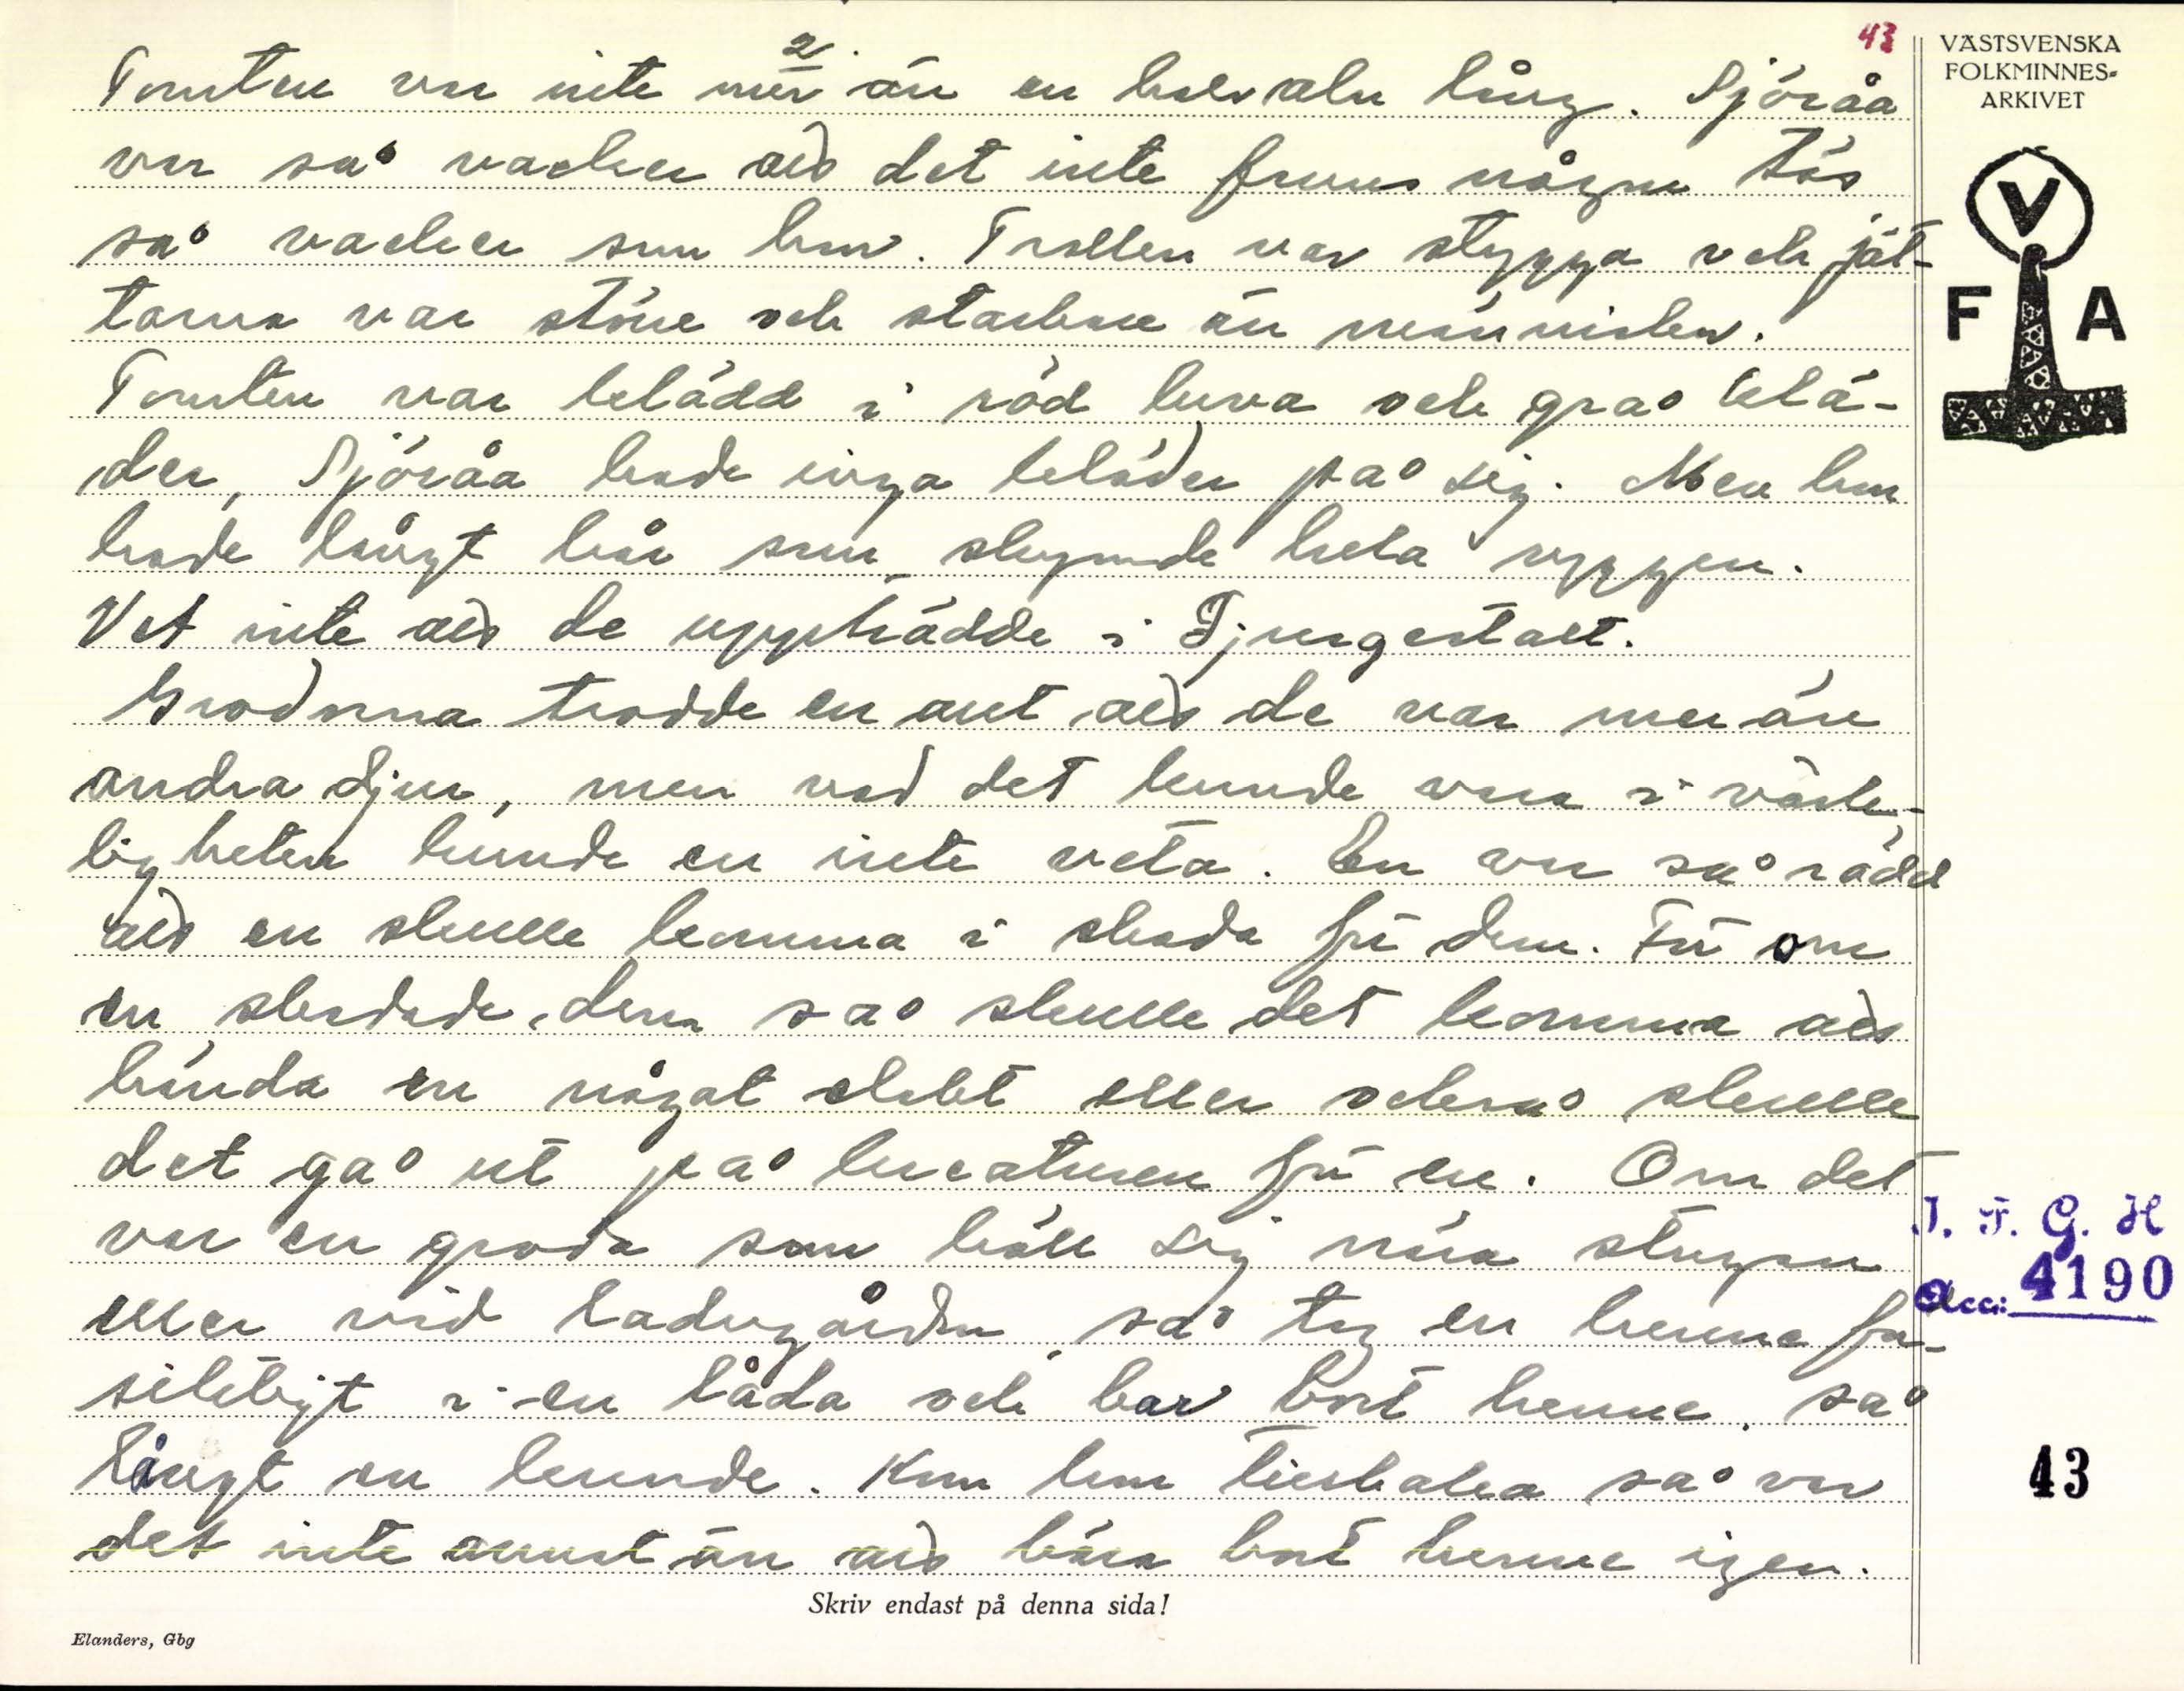 43
2
Tomten var inte mer än en halv aln lång. Sjöråa
var så vacker att det inte fanns någon tös
så vacker som hon. Trollen var stygga och jät-
tarna var större och starkare än människan.
Tomten var klädd i röd luva och grå klä-
der, Sjöråa hade inga kläder på sig. Men hon
hade långt hår som skymde hela ryggen.
Vet inte att de uppträdde i Djurgestalt.
Grodorna trodde en ant att de var mer än
andra djur, men vad det kunde vara i verk-
ligheten kunde en inte veta. En var så rädd
att en skulle komma i skada för dem. För om
en skadade dem så skulle det komma att
hända en något elakt eller också skulle
det gå ut på kreaturen för en. Om det
var en groda som höll sig nära stugan
eller vid ladugården så tog en henne för-
siktigt i en låda och bar bort henne, så
långt en kunde. Kom hon tillbaka så var
det inte annat än att bära bort henne igen.
VÄSTSVENSKA
FOLKMINNES-
ARKIVET
V
F A
I. F. G. H
Acc: 4190
43
Skriv endast på denna sida!
Elanders, Gbg